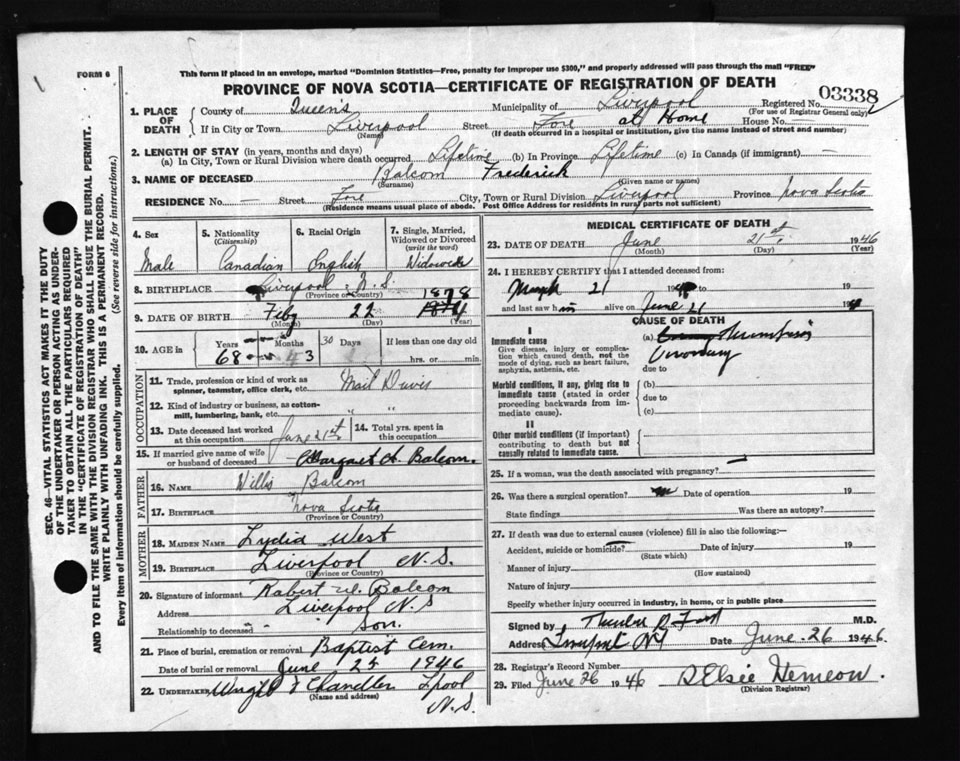 FORM 6
This form if placed in an envelope, marked "Dominion Statistics—Free, penalty for improper use $300," and properly addressed will pass through the mail "FREE"
PROVINCE OF NOVA SCOTIA—CERTIFICATE OF REGISTRATION OF DEATH
SEC. 46—VITAL STATISTICS ACT MAKES IT THE DUTY
OF THE UNDERTAKER OR PERSON ACTING AS UNDER-
TAKER TO OBTAIN ALL THE PARTICULARS REQUIRED
IN THE "CERTIFICATE OF REGISTRATION OF DEATH"
AND TO FILE THE SAME WITH THE DIVISION REGISTRAR WHO SHALL ISSUE THE BURIAL PERMIT.
WRITE PLAINLY WITH UNFADING INK. THIS IS A PERMANENT RECORD.
Every item of information should be carefully supplied. (See reverse side for instructions.)
03338
1. PLACE OF DEATH County of Queen's Municipality of Liverpool Registered No.
(For use of Registrar General only)
If in City or Town Liverpool Street Fore at Home House No.
(Name) (If death occurred in a hospital or institution, give the name instead of street and number)
2. LENGTH OF STAY (in years, months and days)
(a) In City, Town or Rural Division where death occurred Lifetime (b) In Province Lifetime (c) In Canada (if immigrant) —
3. NAME OF DECEASED Balcom Frederick
(Surname) (Given name or names)
RESIDENCE No. — Street Fore City, Town or Rural Division Liverpool Province Nova Scotia
(Residence means usual place of abode. Post Office Address for residents in rural parts not sufficient)
4. Sex 5. Nationality (Citizenship) 6. Racial Origin 7. Single, Married, Widowed or Divorced (write the word)
Male Canadian English Widowed
8. BIRTHPLACE Liverpool N.S.
(Province or Country)
1878
9. DATE OF BIRTH Feby 22
(Month) (Day) (Year)
10. AGE in Years Months 30 Days If less than one day old
68 3 hrs. or min.
OCCUPATION
11. Trade, profession or kind of work as spinner, teamster, office clerk, etc. Mail Driver
12. Kind of industry or business, as cotton-mill, lumbering, bank, etc. " "
13. Date deceased last worked at this occupation June 21st 14. Total yrs. spent in this occupation
15. If married give name of wife or husband of deceased Margaret A. Balcom.
FATHER
16. NAME Willis Balcom
17. BIRTHPLACE Nova Scotia
(Province or Country)
MOTHER
18. MAIDEN NAME Lydia West
19. BIRTHPLACE Liverpool N.S.
(Province or Country)
20. Signature of informant Robert W. Balcom
Address Liverpool N.S
Relationship to deceased Son.
21. Place of burial, cremation or removal Baptist Cem.
Date of burial or removal June 1946
22. UNDERTAKER Wright & Chandler L'pool
(Name and address) N.S.
MEDICAL CERTIFICATE OF DEATH
23. DATE OF DEATH June 21st 1946
(Month) (Day) (Year)
24. I HEREBY CERTIFY that I attended deceased from:
21 19
and last saw him alive on June 21 19
CAUSE OF DEATH
I
Immediate cause
Give disease, injury or complication which caused death, not the mode of dying, such as heart failure, asphyxia, asthenia, etc.
(a) Thrombosis
Coronary
due to
Morbid conditions, if any, giving rise to immediate cause (stated in order proceeding backwards from immediate cause).
(b)
due to
(c)
II
Other morbid conditions (if important) contributing to death but not causally related to immediate cause.
25. If a woman, was the death associated with pregnancy? —
26. Was there a surgical operation? no Date of operation 19
State findings Was there an autopsy?
27. If death was due to external causes (violence) fill in also the following:—
Accident, suicide or homicide? Date of injury 19
(State which)
Manner of injury
(How sustained)
Nature of injury
Specify whether injury occurred in industry, in home, or in public place
Signed by M.D.
Address Liverpool NS Date June 26 1946.
28. Registrar's Record Number
29. Filed June 26 1946 Elsie Hemeon.
(Division Registrar)